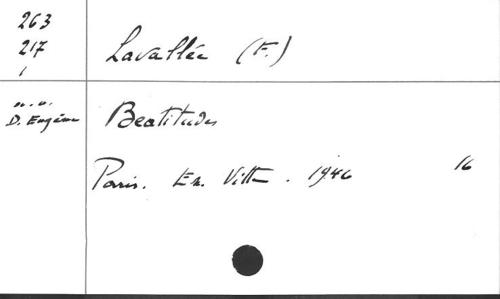 263
217
1
Lavallée (F.)
n.v.
D. Eugène
Beatitudes
Paris. Em. Vitte. 1946 16